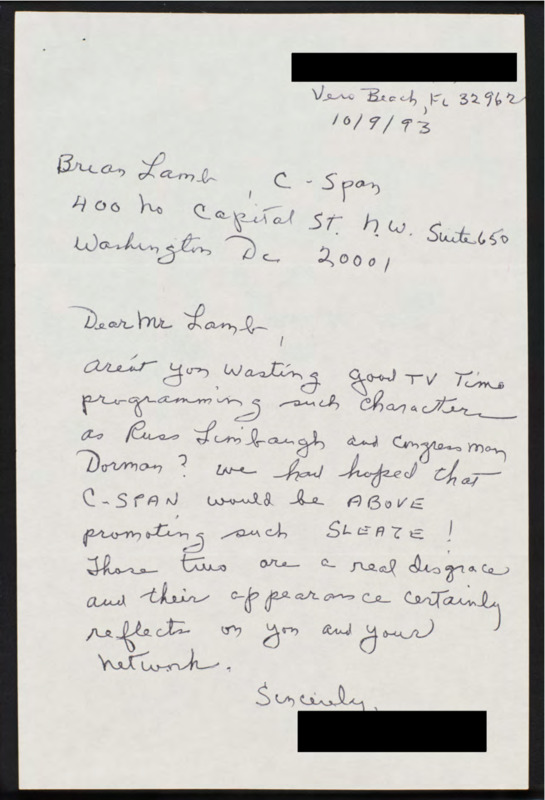 Vero Beach, FL 32962
10/9/93
Brian Lamb, C-Span
400 No Capital St. N.W. Suite 650
Washington Dc 20001
Dear Mr Lamb,
aren't you wasting good TV Time
programming such characters
as Russ Limbaugh and Congressman
Dorman? we had hoped that
C-SPAN would be ABOVE
promoting such SLEAZE!
Those two are a real disgrace
and their appearance certainly
reflects on you and your
network.
Sincerely,